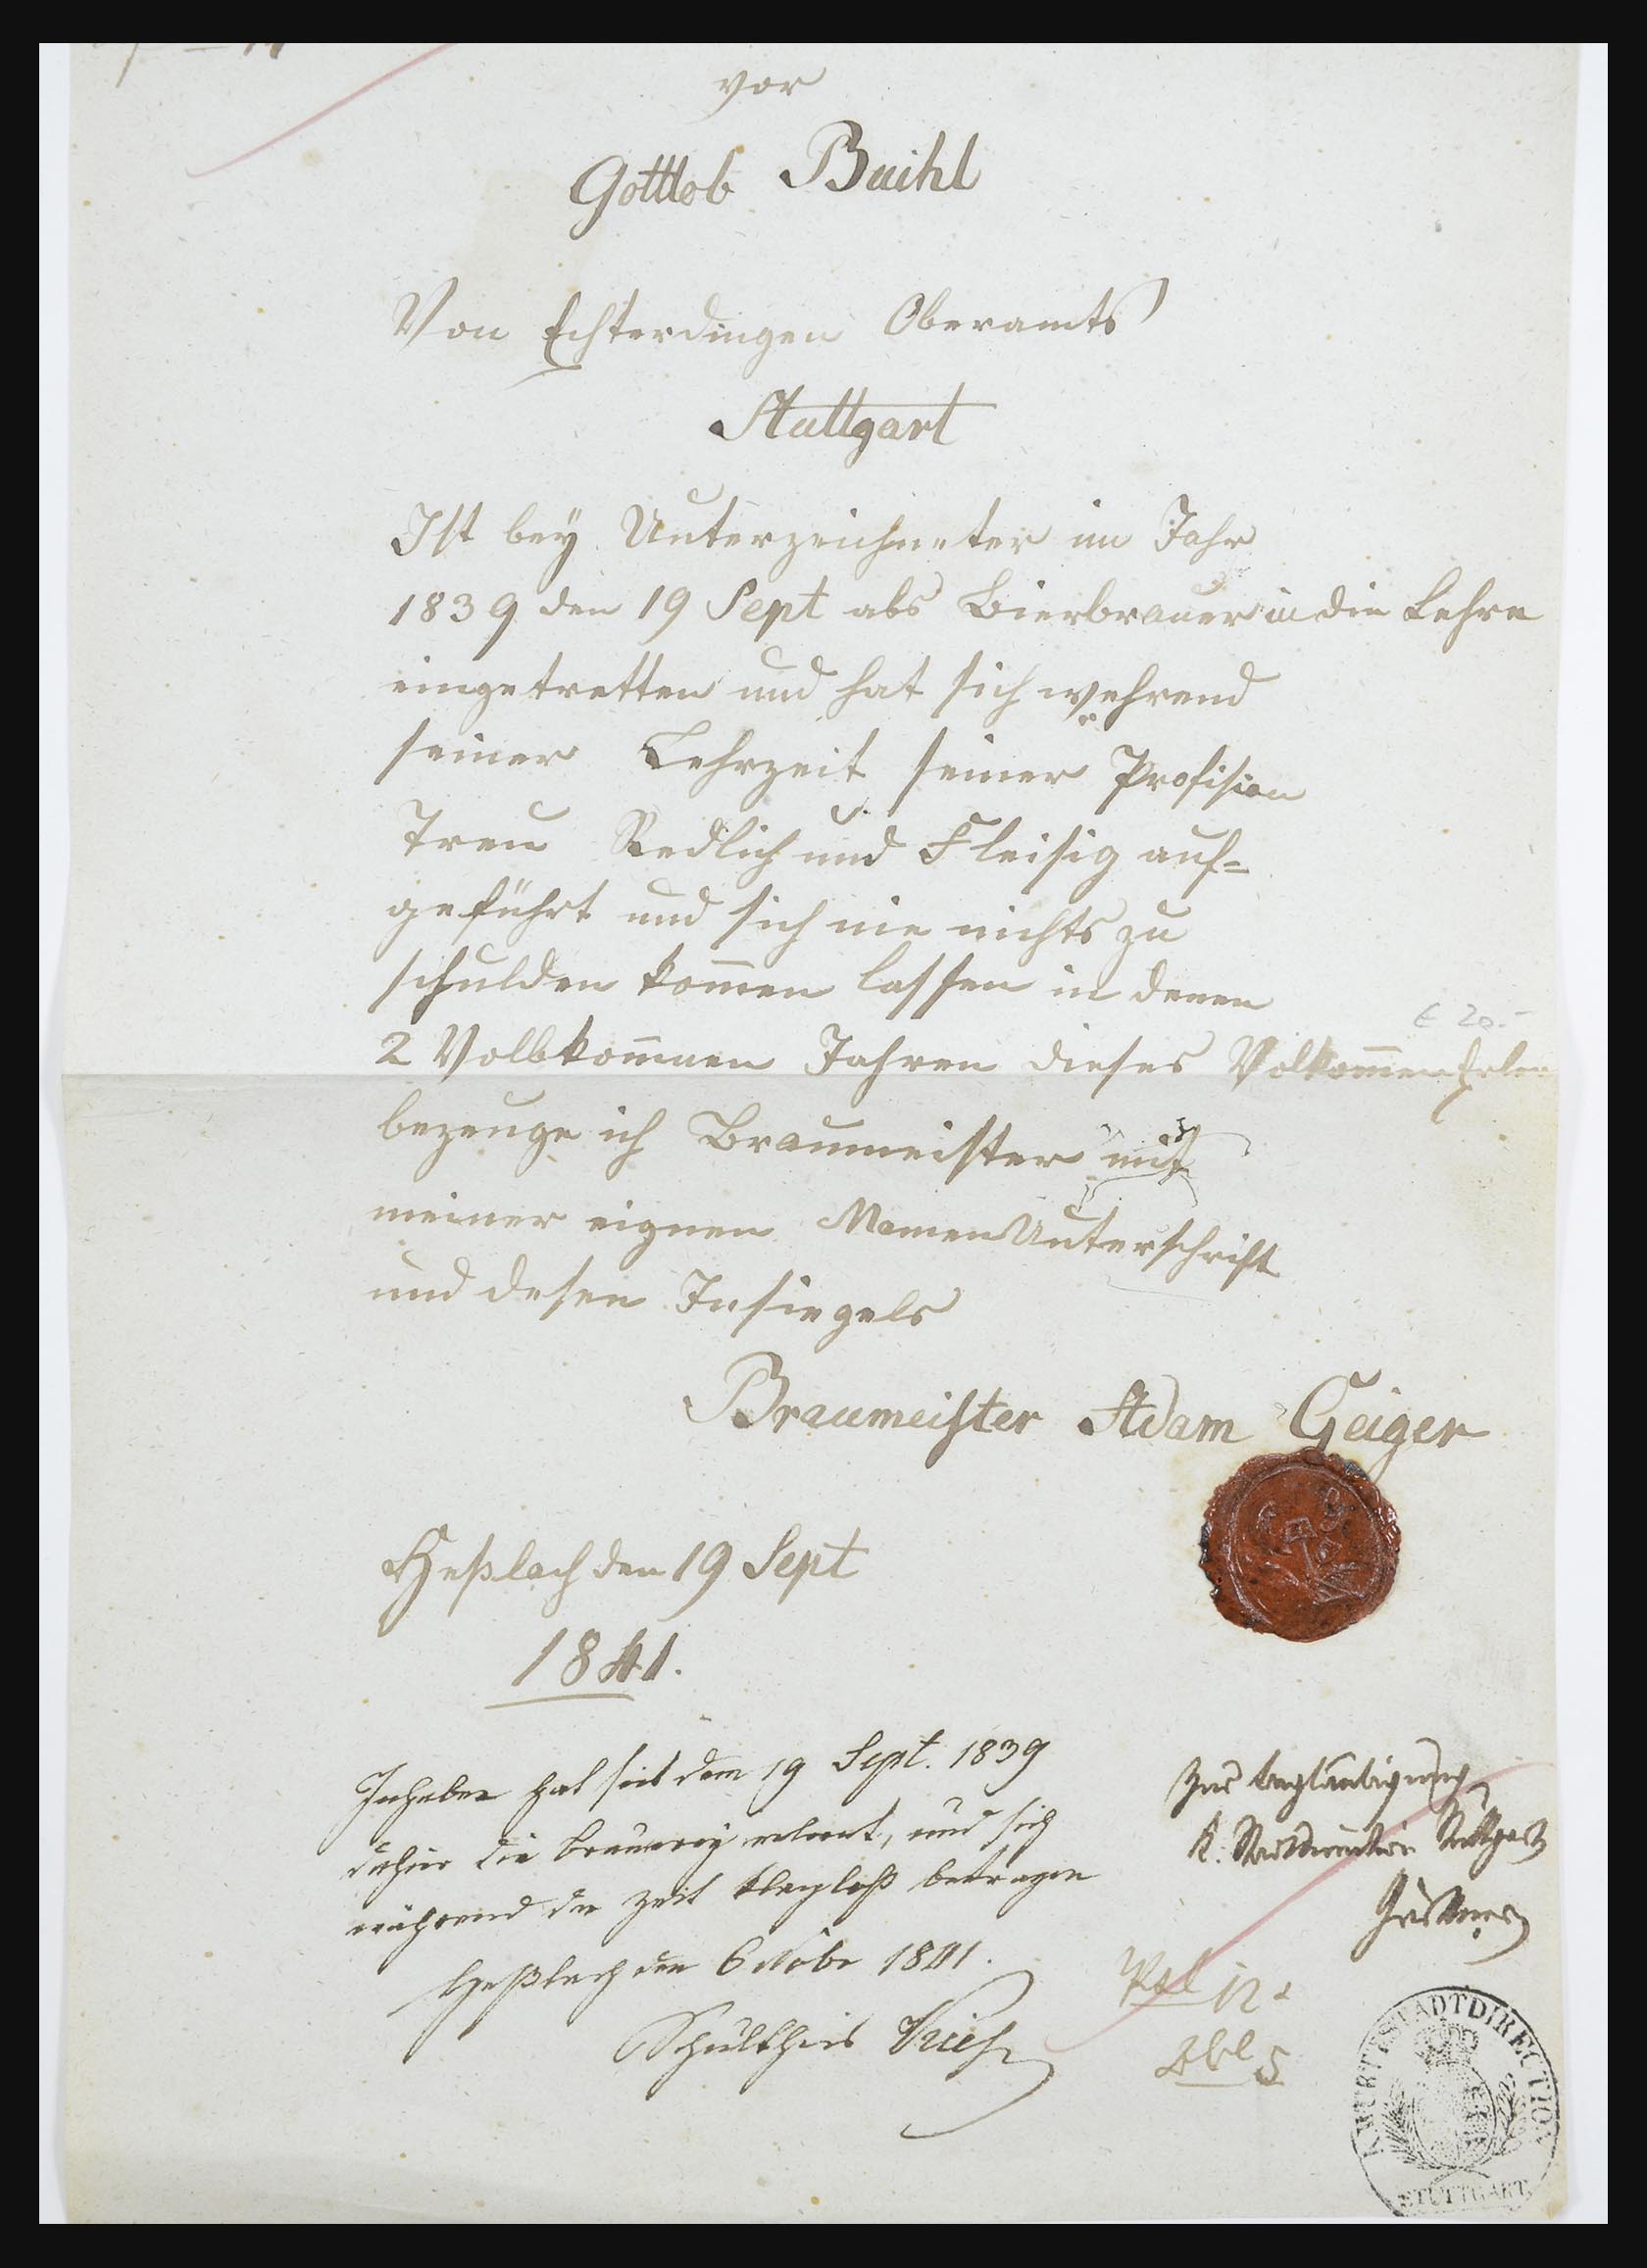 vor
Gottlob Buihl
Von Echterdingen Oberamts
Stuttgart
Ist bey Unterzeichneter im Jahr
1839 den 19 Sept als Bierbrauer in die Lehre
eingetretten und hat sich wehrend
seiner Lehrzeit seiner Profision
Treu Redlich und Fleisig auf=
geführt und sich nie nichts zu
schulden kom̄en lassen in denen
2 Vollkom̄nen Jahren dieses
€ 20.-
bezeuge ich Braumeister mit
meiner eignen Namen Unterschrift
und desen Insiegels
Braumeister Adam Geiger
Heßlach den 19 Sept
1841.
Inhaber hat seit dem 19 Sept. 1839
dahier die Brauerey erlernt, und sich
während der Zeit klaglos betragen
Heßlach den 6 Nobr 1841.
Schultheis
Zur Beglaubigung
K. Stadtdirection Stuttgart
K. WÜRTT. STADTDIRECTION
STUTTGART